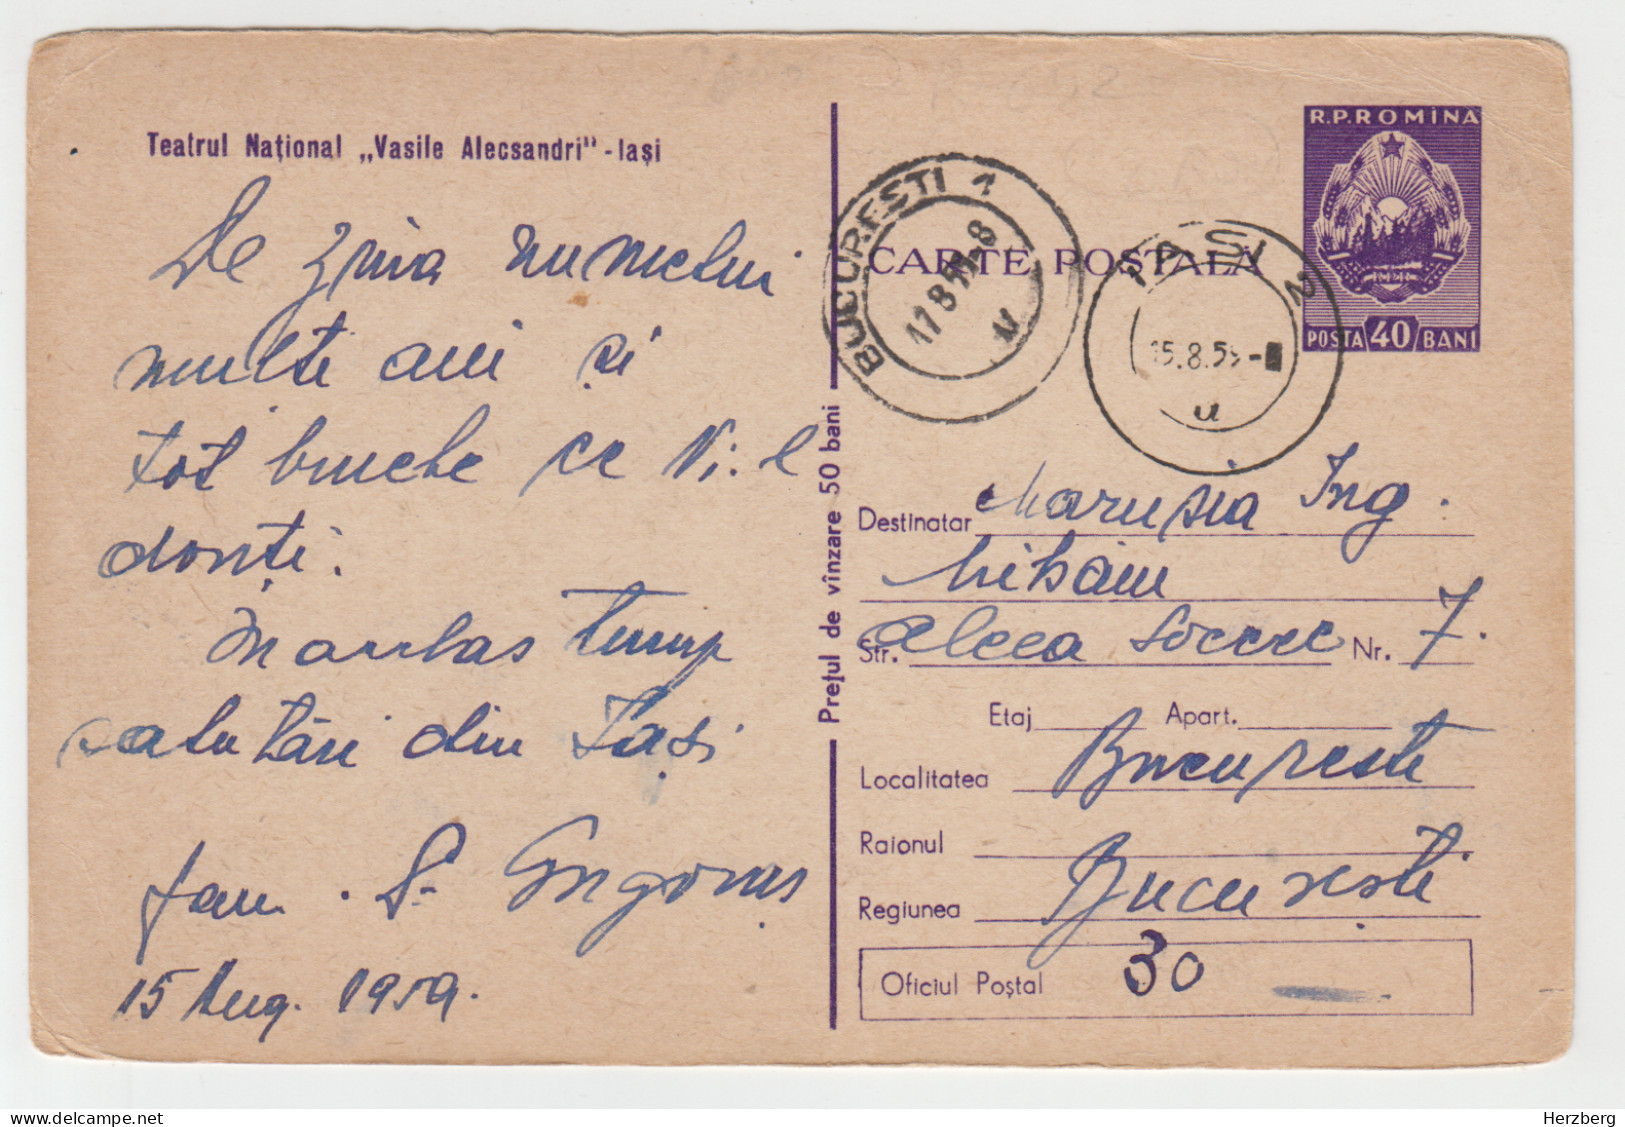 Teatrul Național „Vasile Alecsandri" - Iași
De ziua numelui
multe ani și
tot binele ce Vi-l
doriți.
salutări din Iași
Fam. S. Grigoraș
15 Aug. 1959.
Prețul de vînzare 50 bani
R.P.ROMÎNA
POSTA 40 BANI
CARTE POȘTALĂ
BUCUREȘTI 1
17.8.59-8
IAȘI 2
15.8.59-
u
Destinatar Marușia Ing.
Mihaiu
Str. Aleea Nr. 7.
Etaj Apart.
Localitatea București
Raionul
Regiunea București
Oficiul Poștal 30
Herzberg